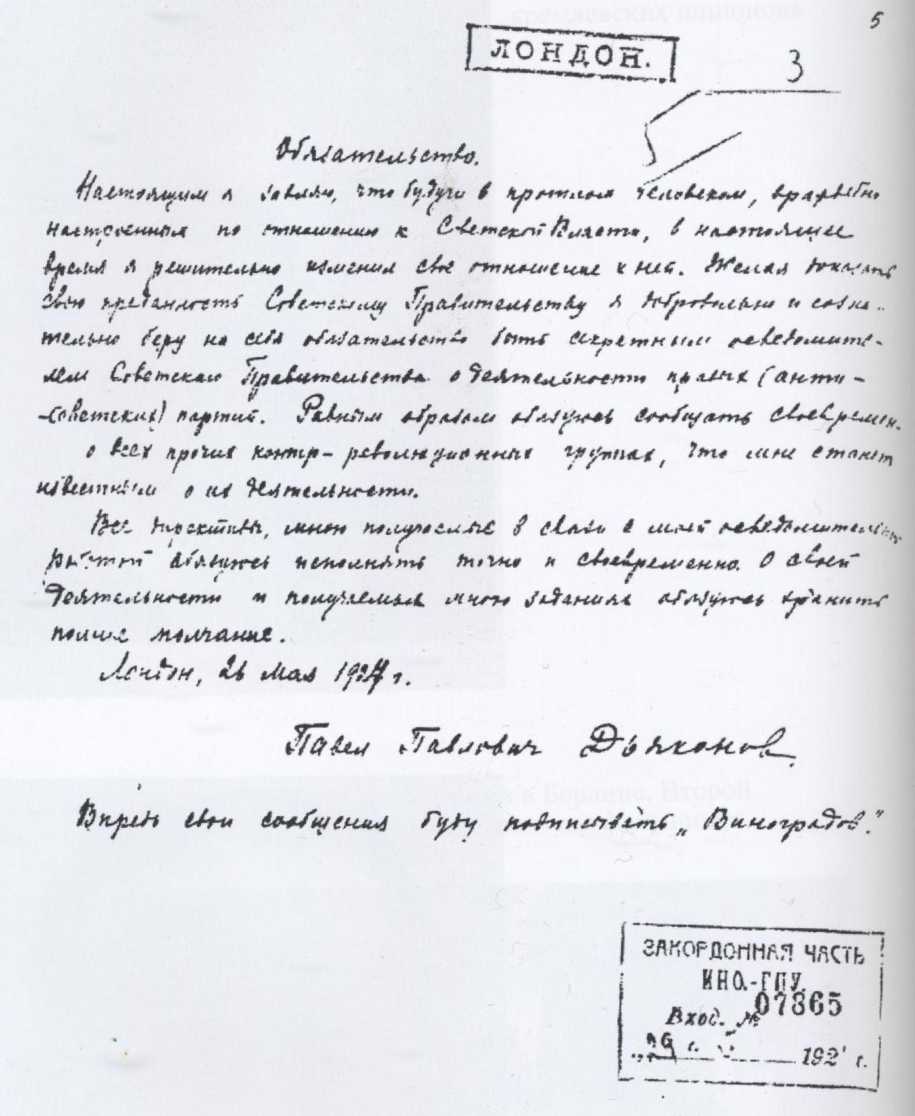 5
ЛОНДОН.
3
Обязательство.
Настоящим я заявляю, что будучи в прошлом человеком, враждебно
настроенным по отношению к Советской Власти, в настоящее
время я решительно изменил свое отношение к ней. Желая доказать
свою преданность Советскому Правительству я добровольно и созна-
тельно беру на себя обязательство быть секретным осведомите-
лем Советского Правительства о деятельности правых (анти-
-советских) партий. Равным образом обязуюсь сообщать своевремен.
о всех прочих контр-революционных группах, что мне станет
известным о их деятельности.
Все директивы, мною получаемые в связи с моей осведомительной
работой обязуюсь исполнять точно и своевременно. О своей
деятельности и получаемых мною заданиях обязуюсь хранить
полное молчание.
Лондон, 26 мая 1924 г.
Павел Павлович Дьяконов.
Впредь свои сообщения буду подписывать „Виноградов."
ЗАКОРДОННАЯ ЧАСТЬ
ИНО.-ГПУ
Вход. № 07365
192 г.